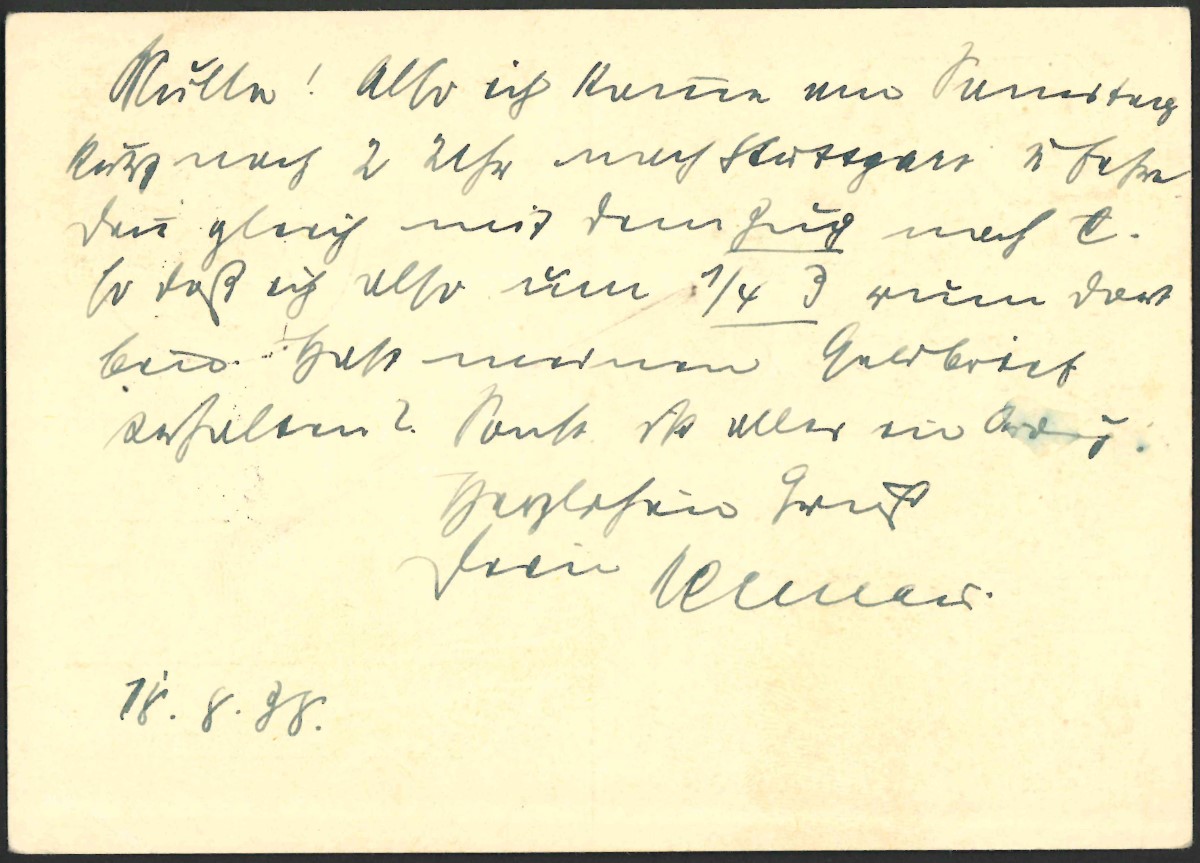 Mulle! Also ich komme am Samstag
kurz nach 2 Uhr nach Stuttgart u fahre
dann gleich mit dem Zug nach C.
so daß ich also um 1/4 3 rum dort
bin. Hast meinen Geldbrief
erhalten? Sonst ist alles in
Herzlichen Gruß
Dein
18.8.38.